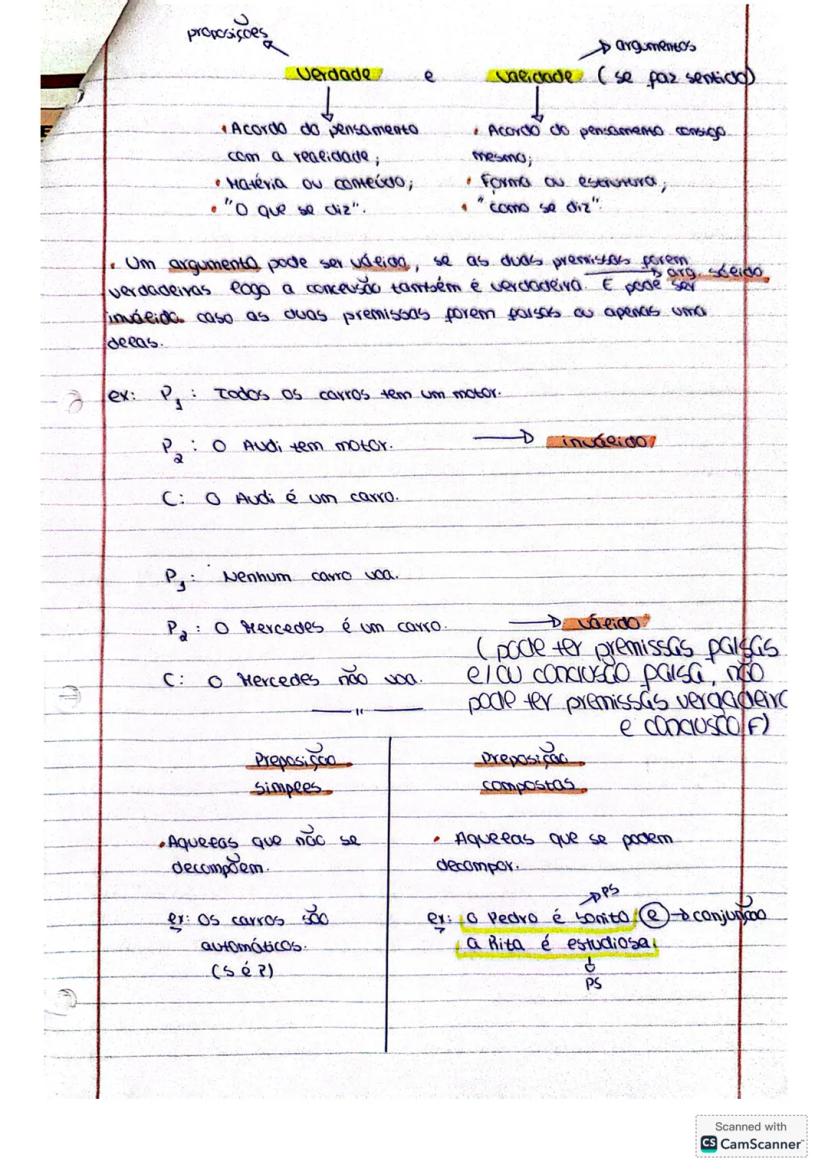 proposições → argumentos
verdade e validade (se faz sentido)
• Acordo do pensamento
com a realidade;
• Matéria ou conteúdo;
• "O que se diz".
• Acordo do pensamento consigo
mesmo;
• Forma ou estrutura;
• "como se diz".
• Um argumento pode ser válido, se as duas premissas forem
→ arg. sólido
verdadeiras logo a conclusão também é verdadeira. E pode ser
inválido caso as duas premissas forem falsas ou apenas uma
delas.
ex: P1 : Todos os carros tem um motor.
P2 : O Audi tem motor. → inválido
C: O Audi é um carro.
P1 : Nenhum carro voa.
P2 : O Mercedes é um carro. → válido
(pode ter premissas falsas
C: O Mercedes não voa. e/ou conclusão falsa, não
pode ter premissas verdadeira
e conclusão F)
— " —
Preposição
simples
• Aquelas que não se
decompõem.
ex: Os carros são
automáticos.
(S é P)
Preposição
compostas
• Aquelas que se podem
decompor.
→ PS
ex: O Pedro é bonito e → conjunção
a Rita é estudiosa
PS
Scanned with
CS CamScanner